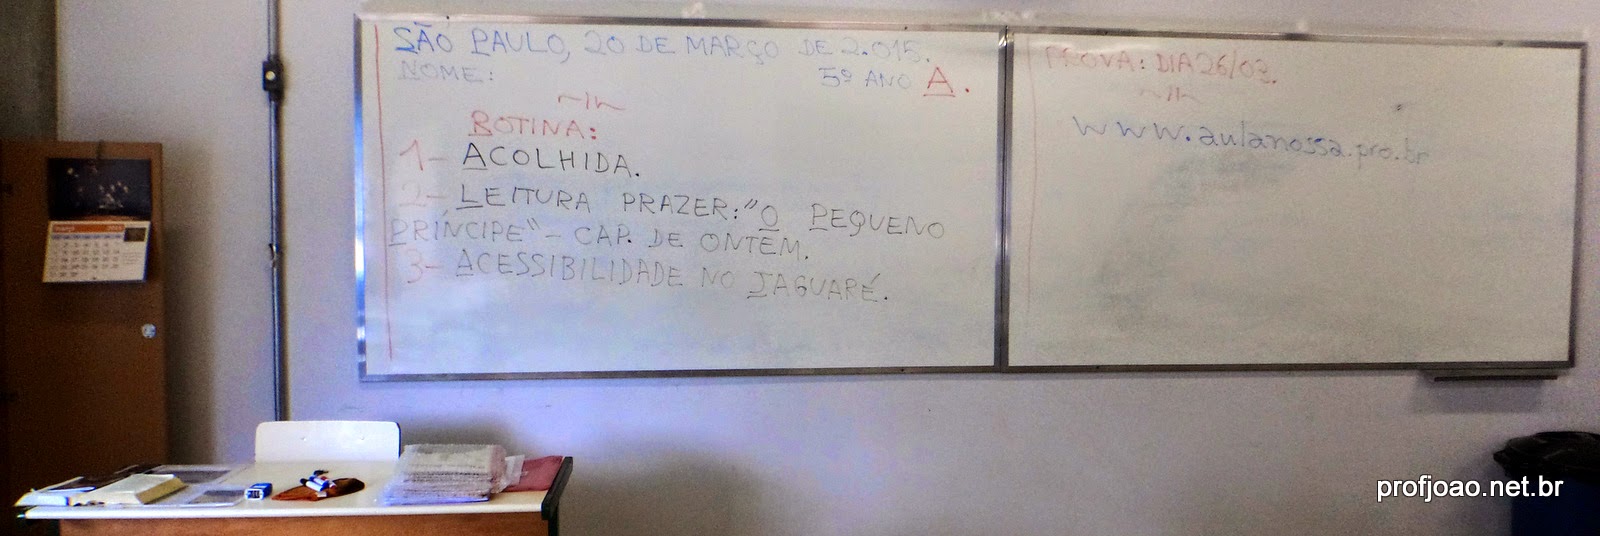 SÃO PAULO, 20 DE MARÇO DE 2.015.
NOME: 5º ANO A.
ROTINA:
1- ACOLHIDA.
2- LEITURA PRAZER: "O PEQUENO
PRÍNCIPE" - CAP. DE ONTEM.
3- ACESSIBILIDADE NO JAGUARÉ.
PROVA: DIA 26/03.
www.aulanossa.pro.br
março 2015
profjoao.net.br